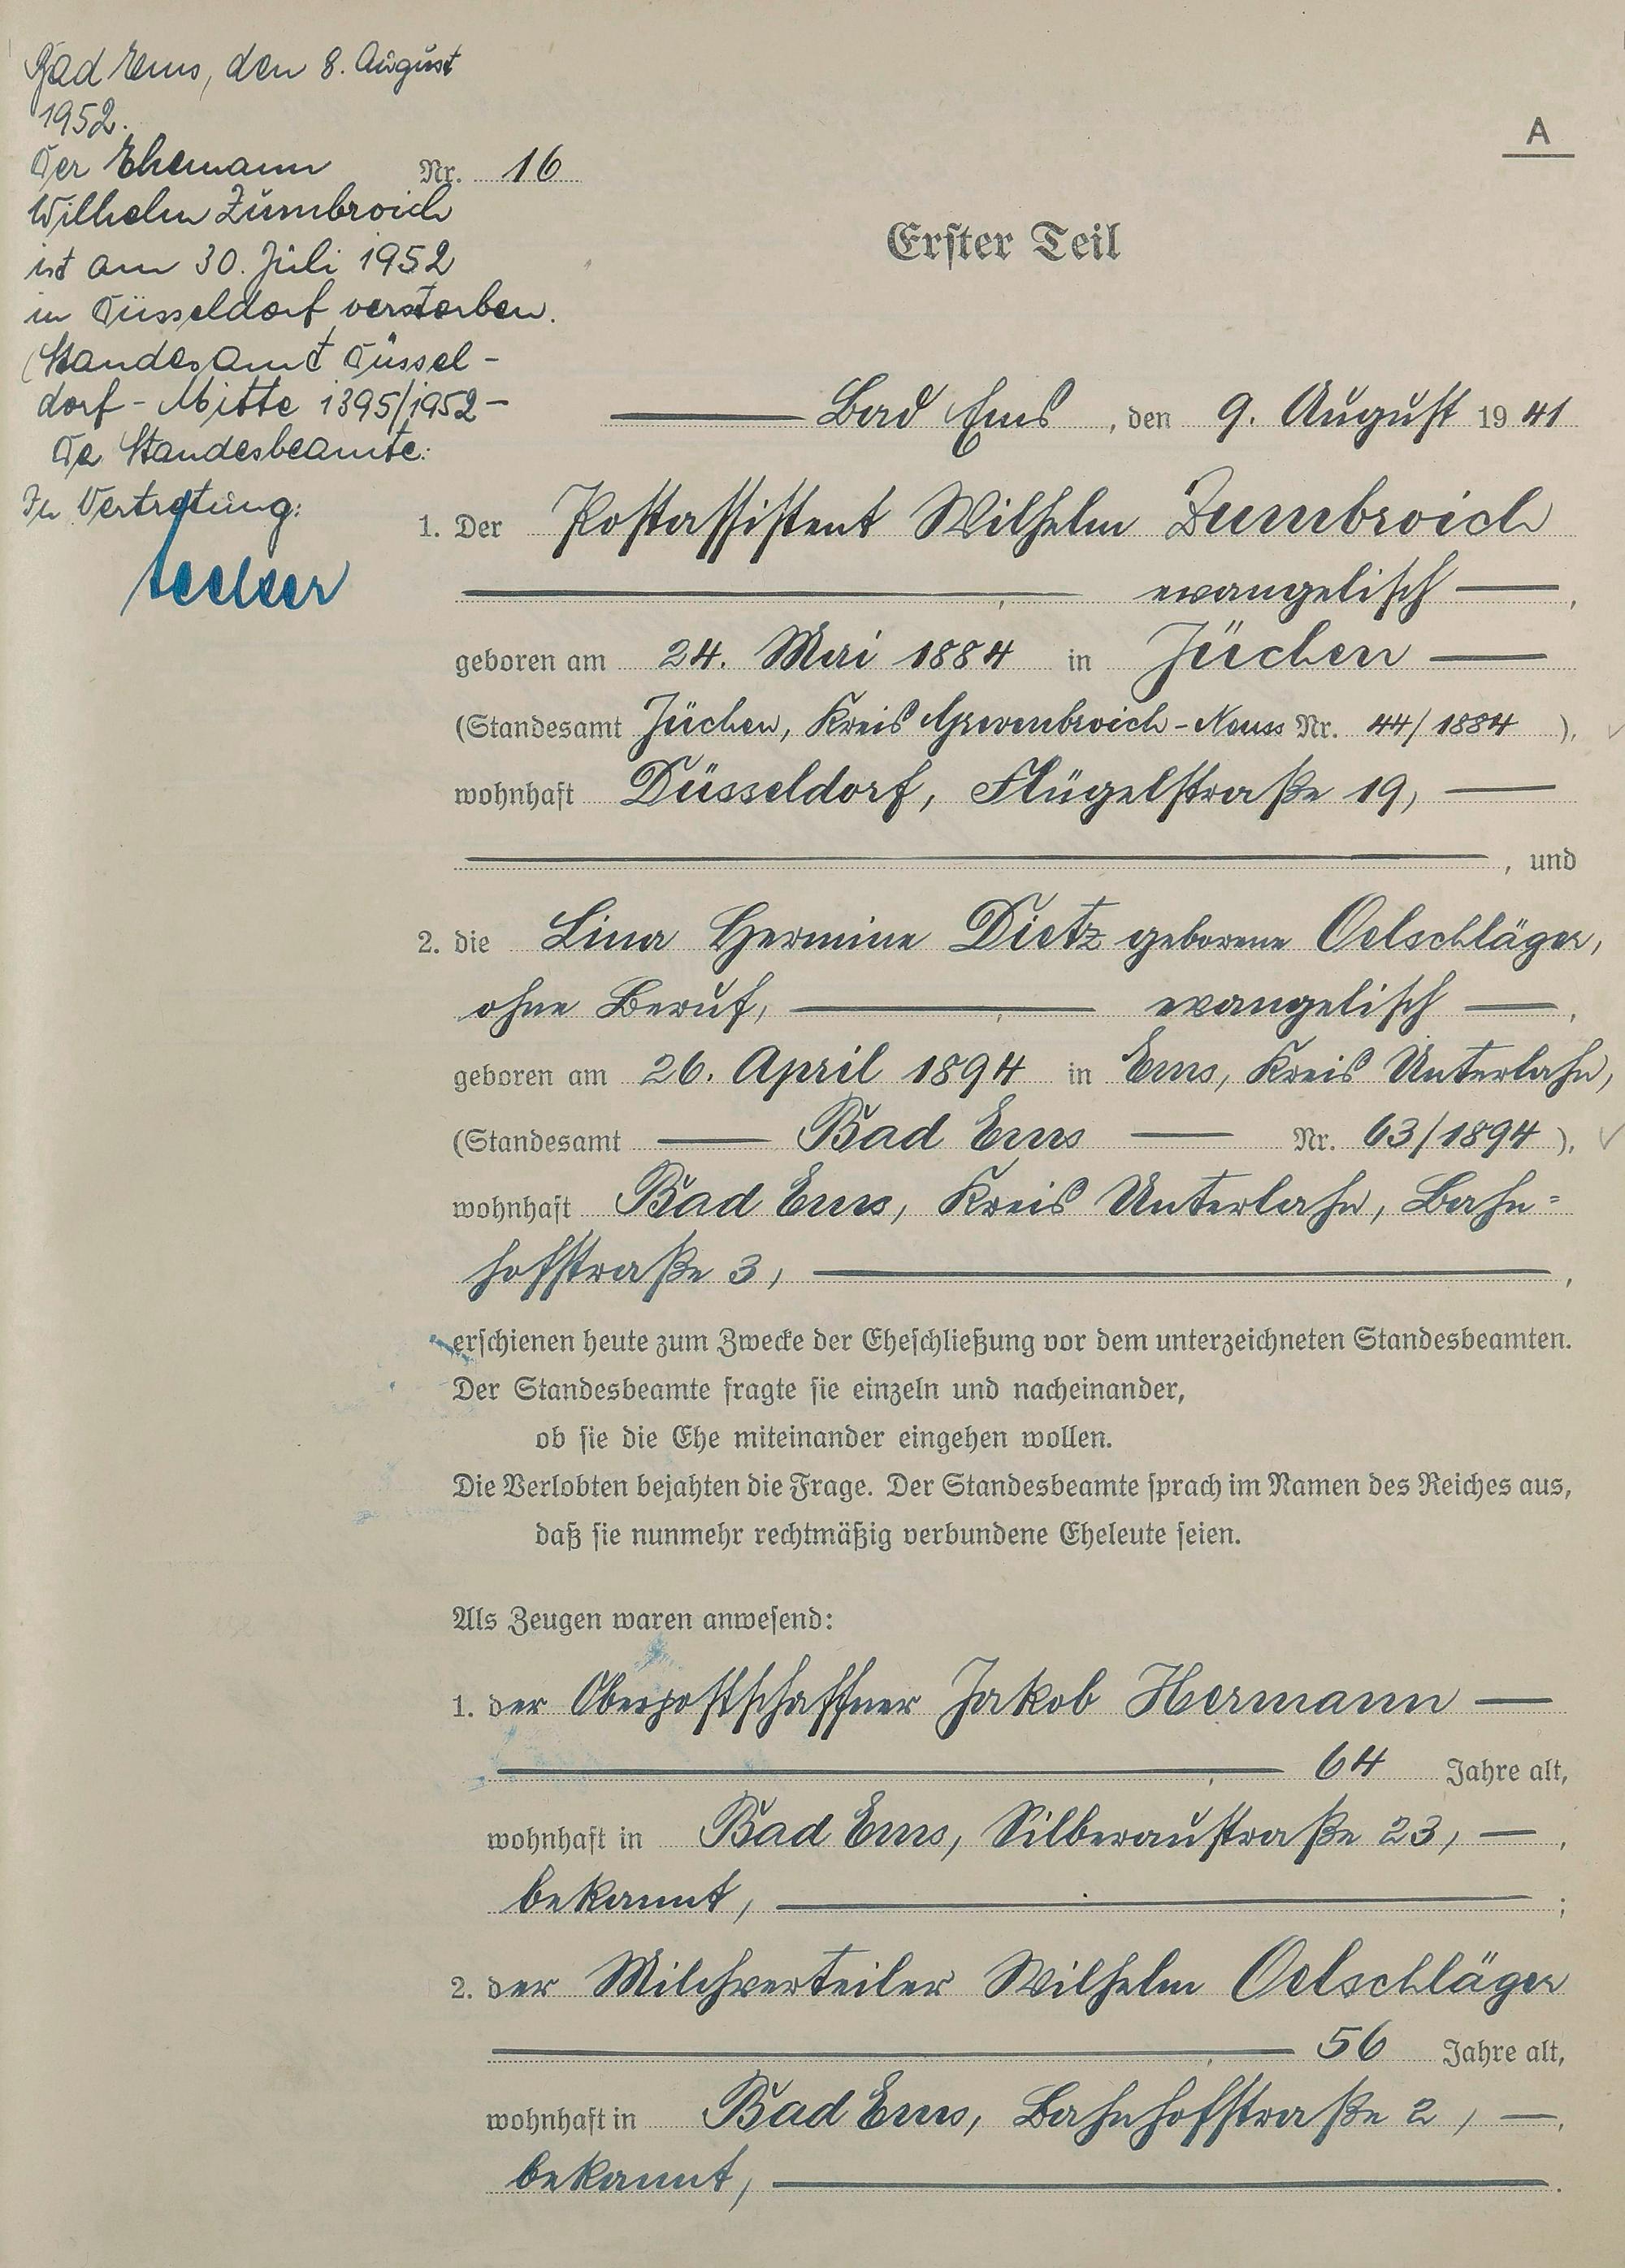 Bad Ems, den 8. August
1952.
Der Ehemann
Wilhelm Zumbroich
ist am 30. Juli 1952
in Düsseldorf verstorben.
(Standesamt Düssel-
dorf-Mitte 1395/1952-
De Standesbeamte:
In Vertretung:
A
Nr. 16
Erster Teil
Bad Ems, den 9. August 1941
1. Der Postassistent Wilhelm Zumbroich
evangelisch,
geboren am 24. Mai 1884 in Jüchen
(Standesamt Jüchen, Kreis Grevenbroich-Neuss Nr. 44/1884),
wohnhaft Düsseldorf, Flügelstraße 19,
, und
2. die Lina Hermine Dietz geborene Oelschläger,
ohne Beruf, evangelisch,
geboren am 26. April 1894 in Ems, Kreis Unterlahn,
(Standesamt Bad Ems Nr. 63/1894),
wohnhaft Bad Ems, Kreis Unterlahn, Bahn=
hofstraße 3,
erschienen heute zum Zwecke der Eheschließung vor dem unterzeichneten Standesbeamten.
Der Standesbeamte fragte sie einzeln und nacheinander,
ob sie die Ehe miteinander eingehen wollen.
Die Verlobten bejahten die Frage. Der Standesbeamte sprach im Namen des Reiches aus,
daß sie nunmehr rechtmäßig verbundene Eheleute seien.
Als Zeugen waren anwesend:
1. der Oberpostschaffner Jakob Hermann
64 Jahre alt,
wohnhaft in Bad Ems, Silberaustraße 23,
bekannt,;
2. der Milchverteiler Wilhelm Oelschläger
56 Jahre alt,
wohnhaft in Bad Ems, Bahnhofstraße 2,
bekannt,.